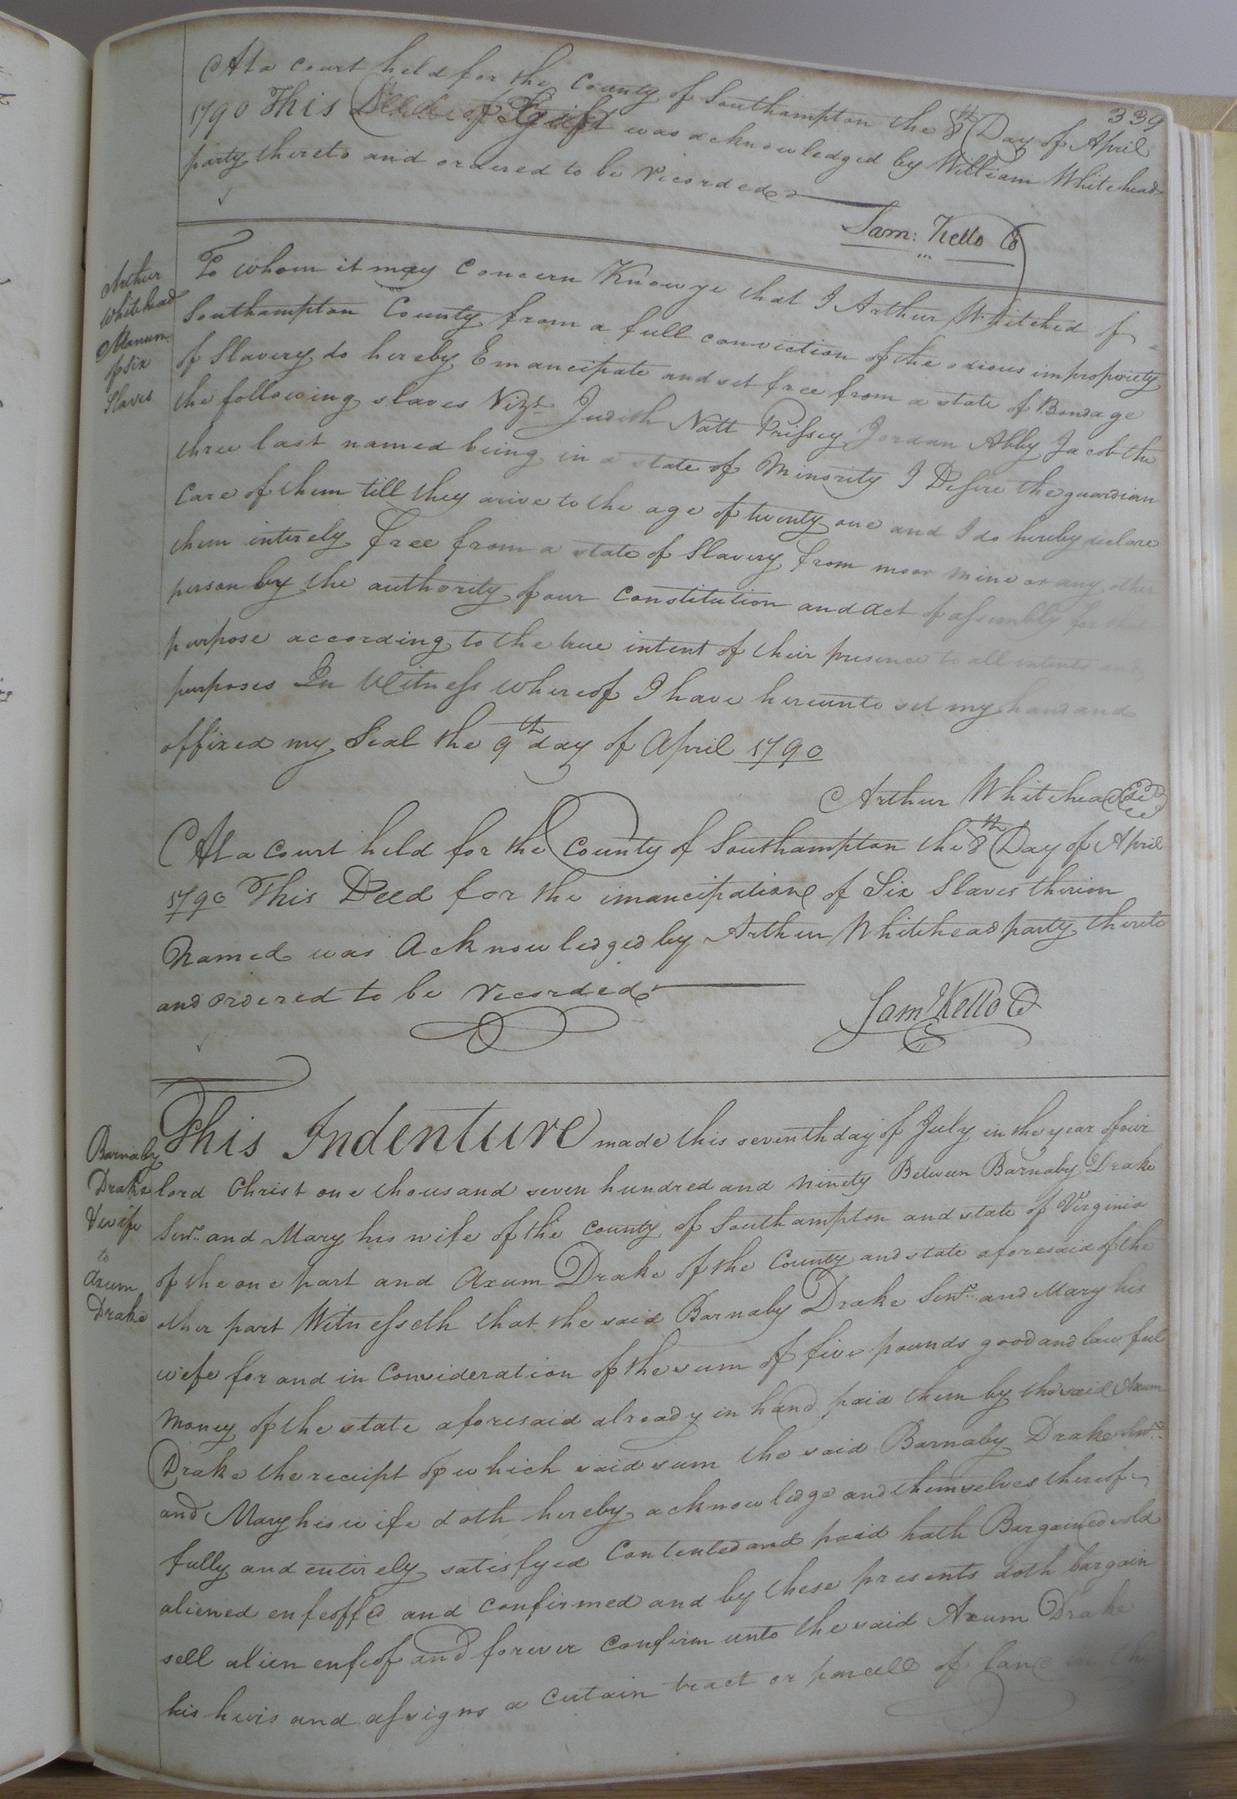 339
At a court held for the County of Southampton the 8th Day of April
1790 This Deed of Gift was acknowledged by William Whitehead
party thereto and ordered to be recorded
Sam: Kello C
Arthur
Whitehead
Manum.
of six
Slaves
To whom it may Concern Know ye that I Arthur Whitehed of
Southampton County from a full conviction of the odious impropriety
of Slavery do hereby Emancipate and set free from a state of Bondage
the following slaves Vizt. Judith Natt Prissey Jordan Abby Jacob the
three last named being in a state of Minority I Desire the guardian
Care of them till they arive to the age of twenty one and I do hereby declare
them intirely Free from a state of Slavery from me or mine or any other
person by the authority of our Constitution and act of assembly for that
purpose according to the true intent of their presence to all intents and
purposes In Witness whereof I have hereunto set my hand and
affixed my Seal the 9th day of April 1790
Arthur Whitehead
At a Court held for the County of Southampton the 8th Day of April
1790 This Deed for the imancipation of Six Slaves therein
Named was Acknowledged by Arthur Whitehead party thereto
and ordered to be recorded
Sam Kello C
Barnaby
Drake
& wife
to
Axum
Drake
This Indenture made this seventh day of July in the year of our
lord Christ one thousand seven hundred and ninety Between Barnaby Drake
Senr. and Mary his wife of the County of Southampton and state of Virginia
of the one part and Axum Drake of the County and state aforesaid of the
other part Witnesseth that the said Barnaby Drake Senr. and Mary his
wife for and in Consideration of the sum of five pounds good and lawful
Money of the state aforesaid already in hand paid them by the said Axum
Drake the receipt of which said sum the said Barnaby Drake Senr.
and Mary his wife doth hereby acknowledge and themselves thereof
fully and entirely satisfyed Contented and paid hath Bargained sold
aliened enfeoff'd and Confirmed and by these presents doth bargain
sell alien enfeof and forever Confirm unto the said Axum Drake
his heirs and assigns a Certain tract or parcell of land